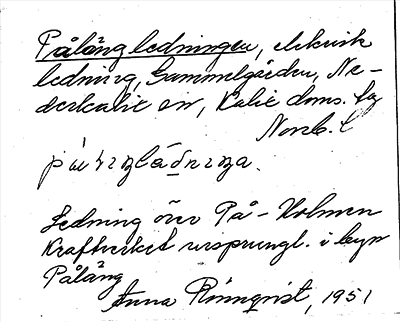 Pålångledningen, elektrisk
ledning, Gammelgården, Ne-
derkalix sn, Kalix doms. lg
Norrb. l
Ledning över På-Holmen
Kraftverket ursprungl. i byn
Pålång
Anna Rönnqvist, 1951